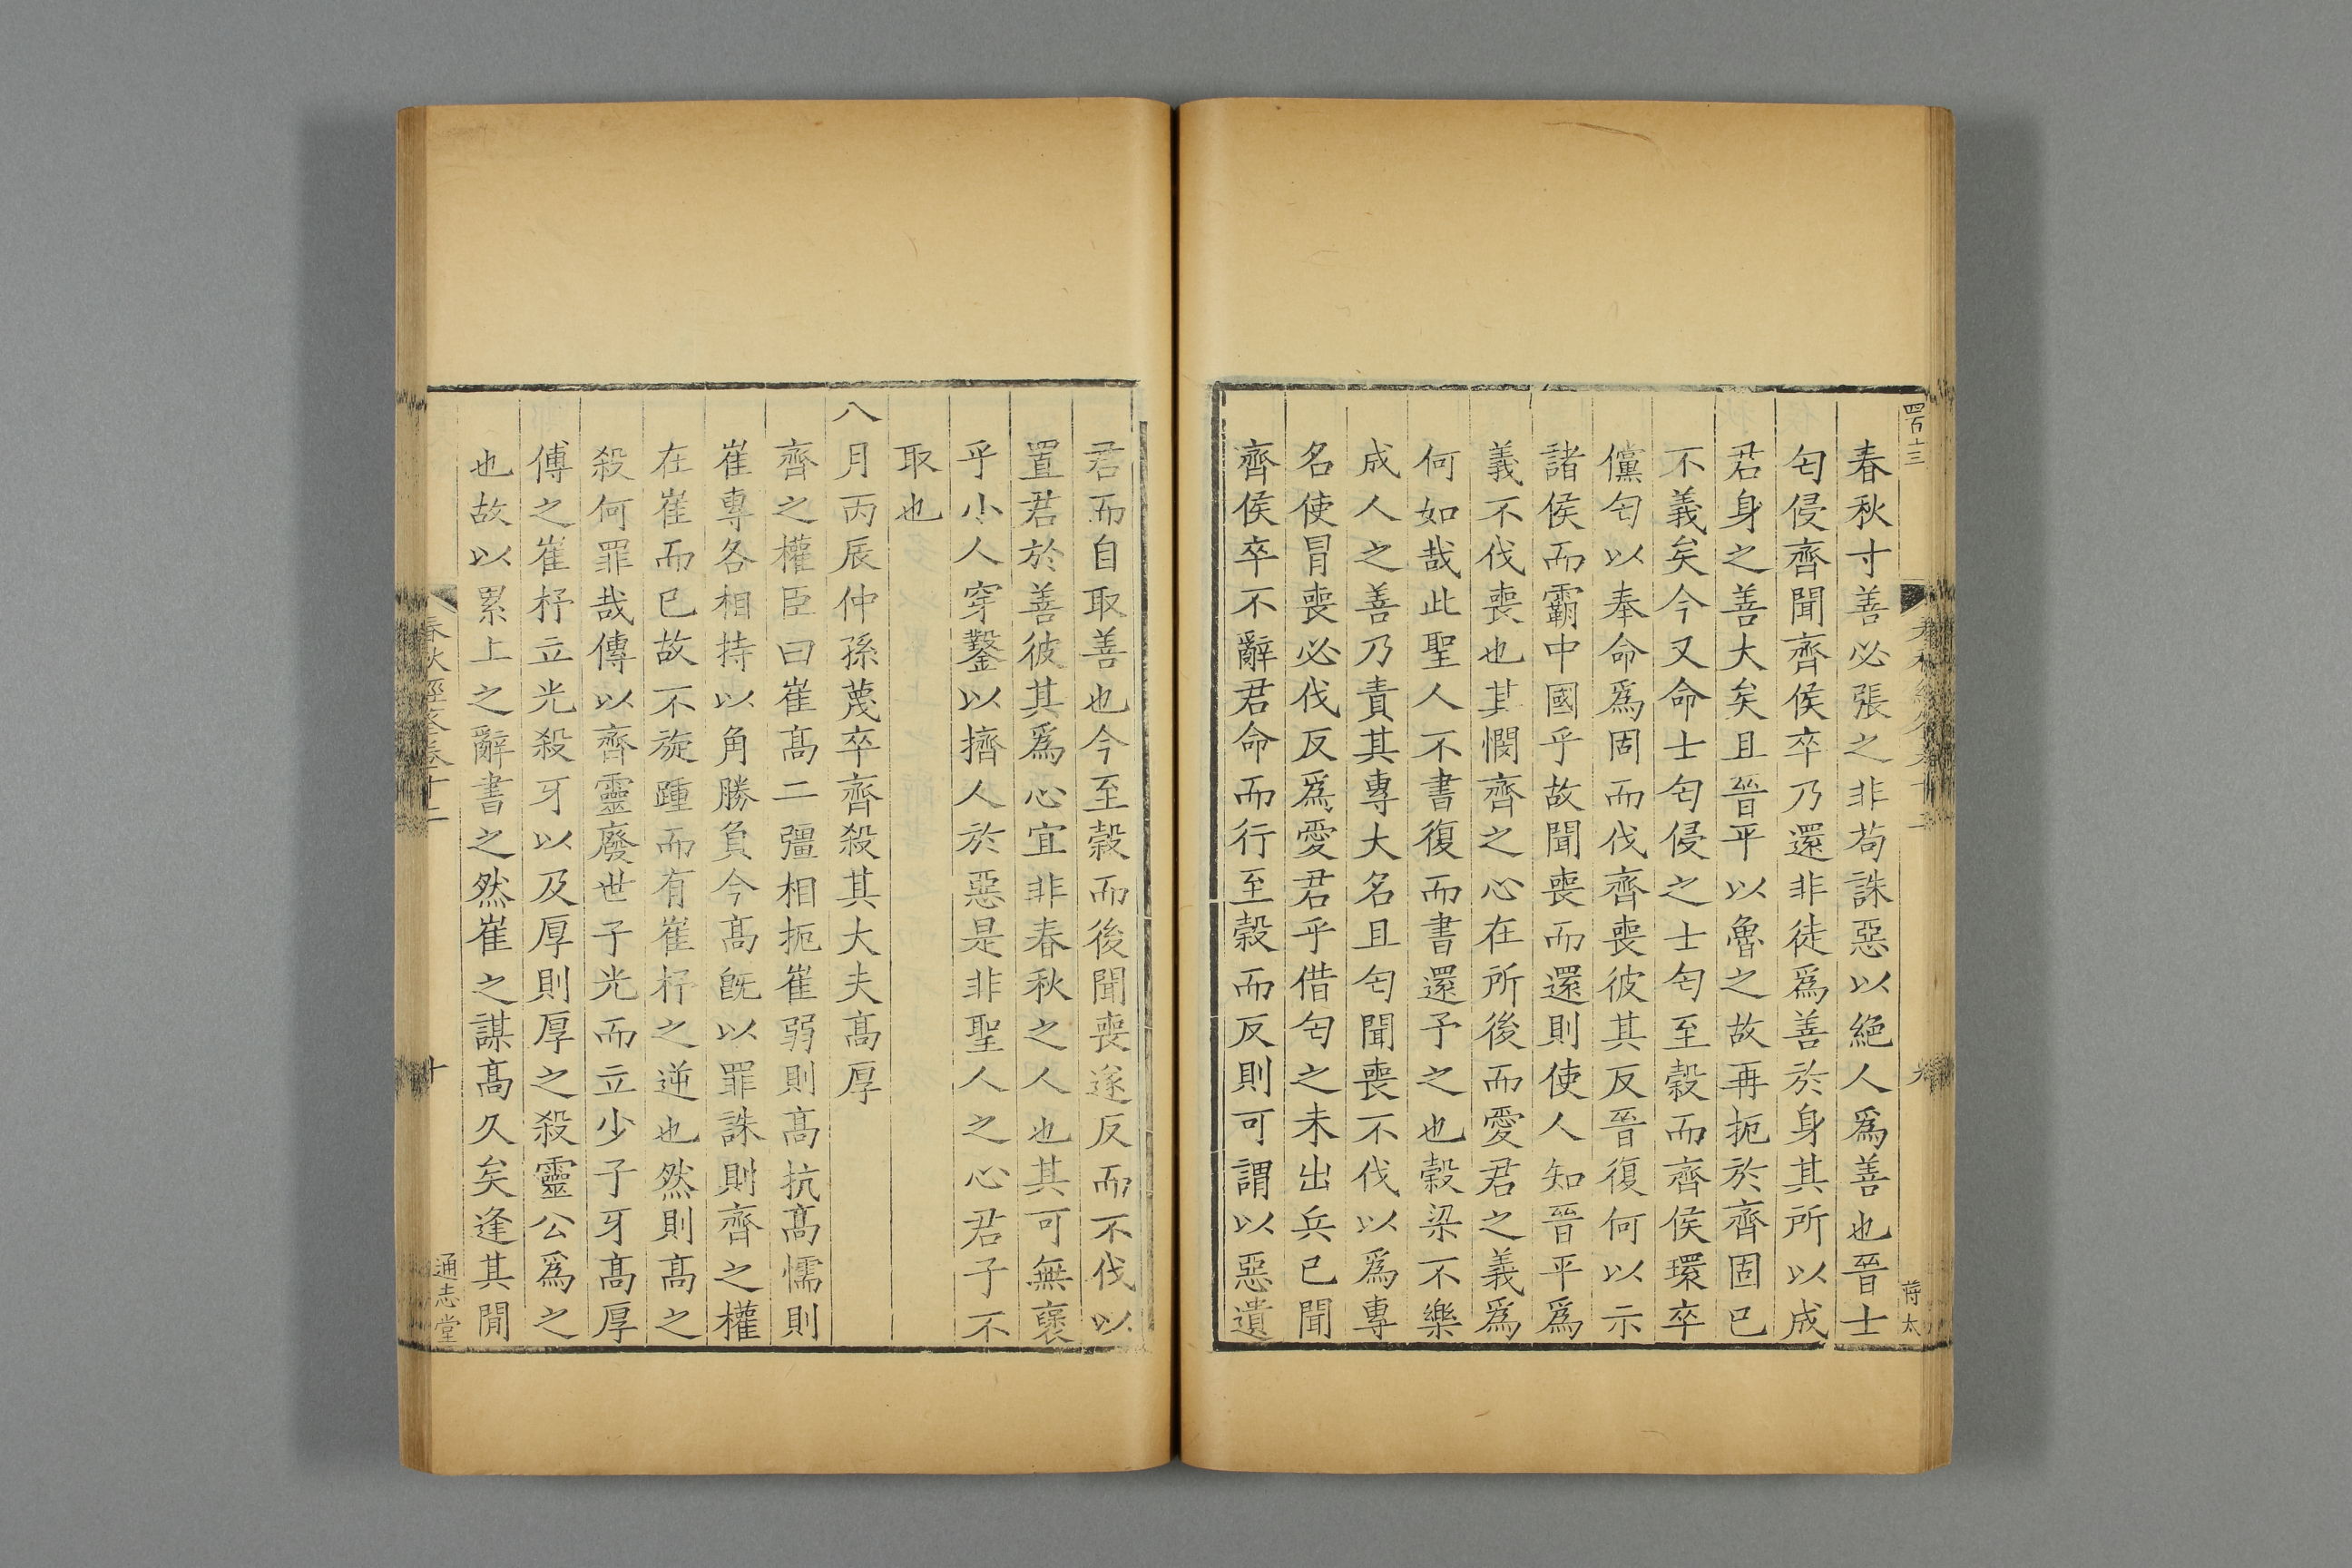 四百十三
春秋寸善必張之非苟誅惡以絶人爲善也晉士
匄侵齊聞齊侯卒乃還非徒爲善於身其所以成
君身之善大矣且晉平以魯之故再扼於齊固已
不義矣今又命士匄侵之士匄至榖而齊侯環卒
儻匄以奉命爲固而伐齊喪彼其反晉復何以示
諸侯而霸中國乎故聞喪而還則使人知晉平爲
義不伐喪也其憫齊之心在所後而愛君之義爲
何如哉此聖人不書復而書還予之也榖梁不樂
成人之善乃責其專大名且匄聞喪不伐以爲專
名使冒喪必伐反爲愛君乎借匄之未出兵已聞
齊侯卒不辭君命而行至榖而反則可謂以惡遺
蔣太
君而自取善也今至榖而後聞喪遂反而不伐以
置君於善彼其爲心宜非春秋之人也其可無襃
乎小人穿鑿以擠人於惡是非聖人之心君子不
取也
八月丙辰仲孫蔑卒齊殺其大夫髙厚
齊之權臣曰崔髙二彊相扼崔弱則髙抗髙懦則
崔專各相持以角勝負今髙旣以罪誅則齊之權
在崔而已故不旋踵而有崔杼之逆也然則髙之
殺何罪哉傳以齊靈廢世子光而立少子牙髙厚
傅之崔杼立光殺牙以及厚則厚之殺靈公爲之
也故以累上之辭書之然崔之謀髙久矣逢其閒
春秋經筌卷十二
十
通志堂